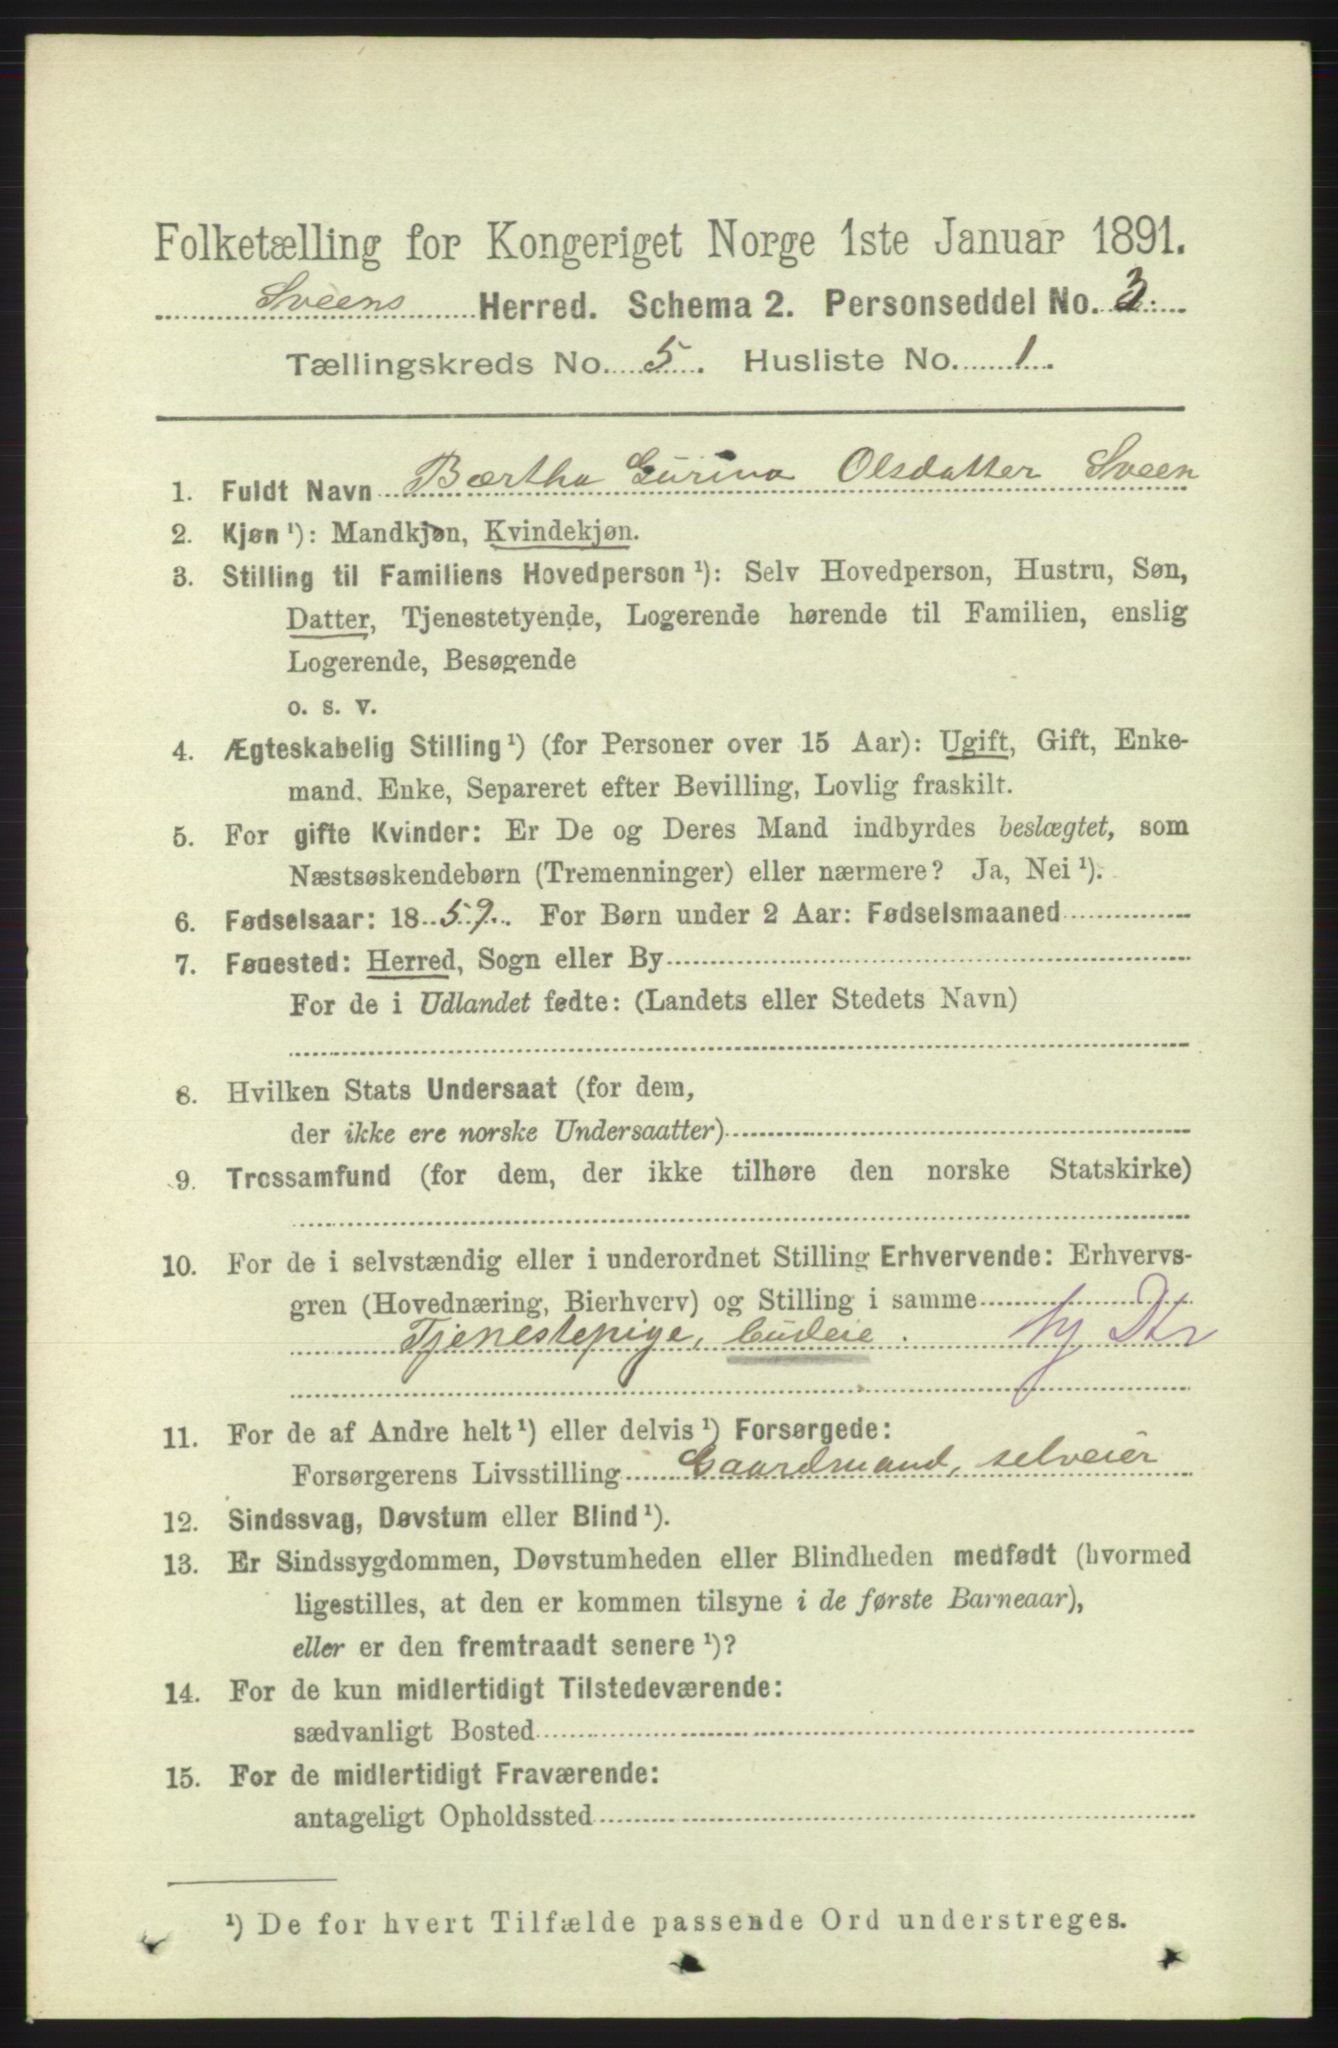 Folketælling for Kongeriget Norge 1ste Januar 1891.
Sveens Herred. Schema 2. Personseddel No. 3.
Tællingskreds No. 5. Husliste No. 1.
1. Fuldt Navn Bærtha Gurina Olsdatter Sveen
2. Kjøn ¹): Mandkjøn, Kvindekjøn.
3. Stilling til Familiens Hovedperson ¹): Selv Hovedperson, Hustru, Søn,
Datter, Tjenestetyende, Logerende hørende til Familien, enslig
Logerende, Besøgende
o. s. v.
4. Ægteskabelig Stilling ¹) (for Personer over 15 Aar): Ugift, Gift, Enke-
mand. Enke, Separeret efter Bevilling, Lovlig fraskilt.
5. For gifte Kvinder: Er De og Deres Mand indbyrdes beslægtet, som
Næstsøskendebørn (Tremenninger) eller nærmere? Ja, Nei ¹).
6. Fødselsaar: 1859. For Børn under 2 Aar: Fødselsmaaned
7. Føuested: Herred, Sogn eller By
For de i Udlandet fødte: (Landets eller Stedets Navn)
8. Hvilken Stats Undersaat (for dem,
der ikke ere norske Undersaatter)
9. Trossamfund (for dem, der ikke tilhøre den norske Statskirke)
10. For de i selvstændig eller i underordnet Stilling Erhvervende: Erhvervs-
gren (Hovednæring, Bierhverv) og Stilling i samme
Tjenestepige, budeie.
11. For de af Andre helt ¹) eller delvis ¹) Forsørgede:
Forsørgerens Livsstilling Gaardmand, selveier
12. Sindssvag, Døvstum eller Blind ¹).
13. Er Sindssygdommen, Døvstumheden eller Blindheden medfødt (hvormed
ligestilles, at den er kommen tilsyne i de første Barneaar),
eller er den fremtraadt senere ¹)?
14. For de kun midlertidigt Tilstedeværende:
sædvanligt Bosted
15. For de midlertidigt Fraværende:
antageligt Opholdssted
¹) De for hvert Tilfælde passende Ord understreges.